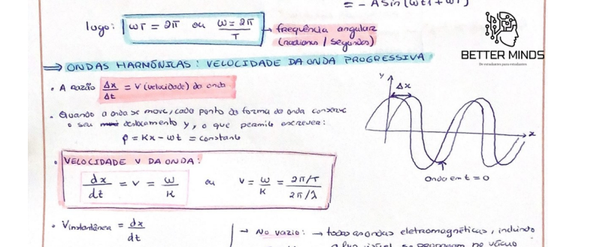 = - A sin (ωt1 + ωT)
logo: ωT = 2π ou ω = 2π/T → frequência angular
(radianos / segundos)
BETTER MINDS
⇒ ONDAS HARMÔNICAS: VELOCIDADE DA ONDA PROGRESSIVA
• A razão Δx/Δt = v (velocidade) da onda
• Quando a onda se move, cada ponto da forma da onda conserva
o seu deslocamento y, o que permite escrever:
φ = Kx - ωt = constante
y
Δx
x
Onda em t = 0
VELOCIDADE V DA ONDA:
dx/dt = v = ω/K ou v = ω/K = 2π/T / 2π/λ
• Vinstantânea = dx/dt
→ No vazio: → todas as ondas eletromagnéticas, incluindo